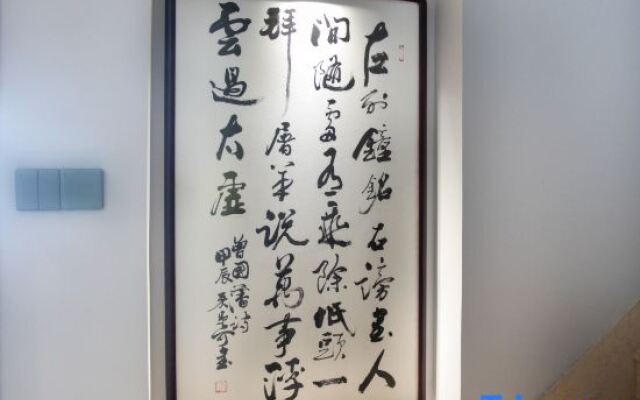 左列鐘銘右謗書人
間隨處有乘除低頭一
拜屠羊說萬事浮
雲過太虛
曾國藩詩
甲辰